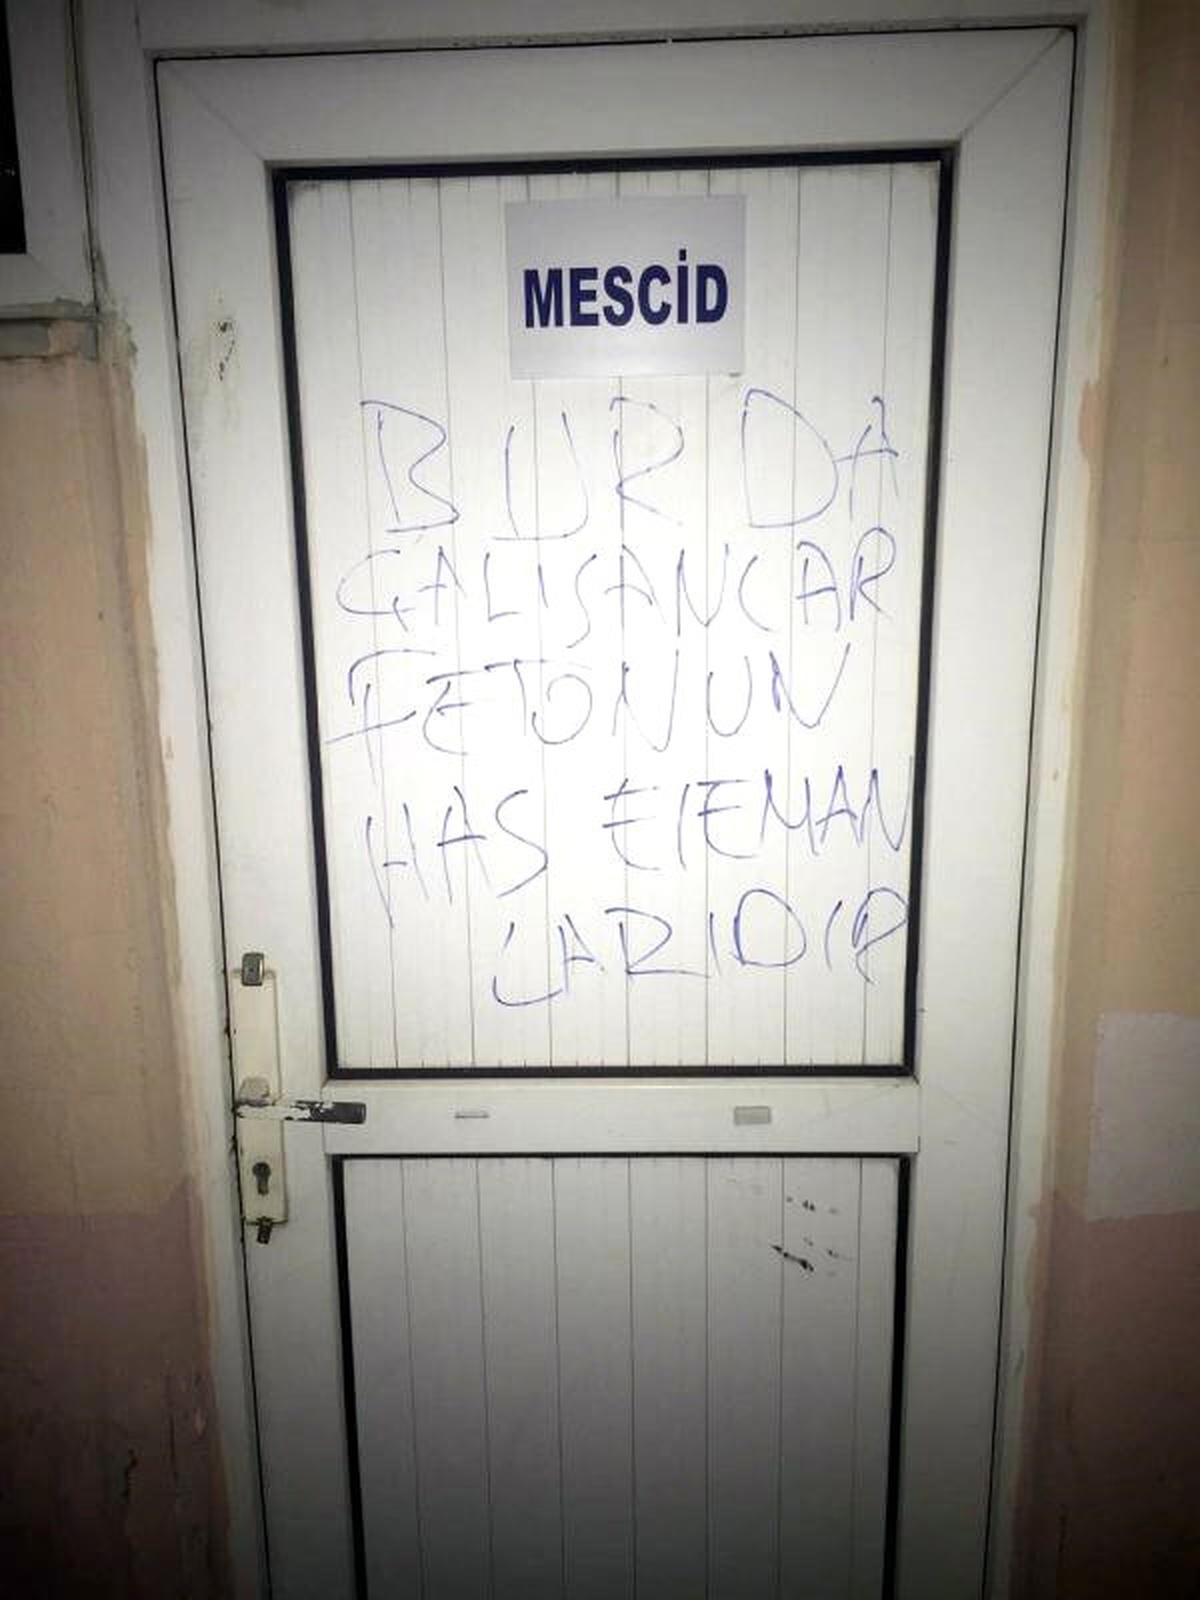 MESCİD
BURDA
ÇALIŞANLAR
FETONUN
HAS ElEMAN
LARIDIR